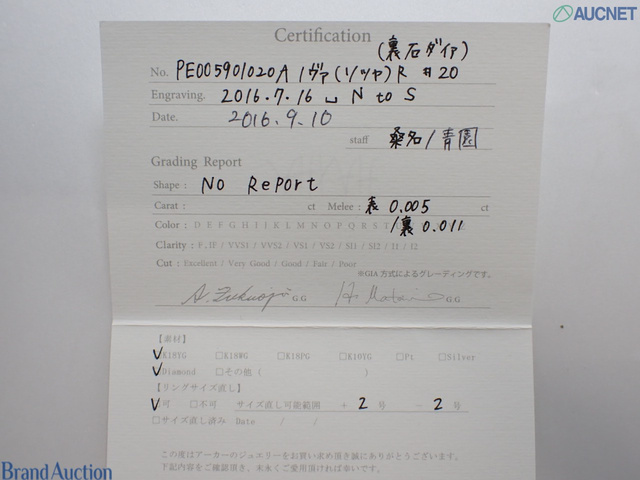 AUCNET
Certification
(裏石ダイア)
No. PE005901020A / ヴァ(ソツヤ)R #20
Engraving. 2016.7.16 ␣ N to S
Date. 2016.9.10
staff 桑名/青園
Grading Report
Shape : No Report
Carat : ct Melee : 表 0.005 ct
/裏 0.011
Color : D E F G H I J K L M N O P Q R S T
Clarity : F. IF / VVS1 / VVS2 / VS1 / VS2 / SI1 / SI2 / I1 / I2
Cut : Excellent / Very Good / Good / Fair / Poor
※GIA方式によるグレーディングです。
G.G G.G
【素材】
✓K18YG □K18WG □K18PG □K10YG □Pt □Silver
✓Diamond □その他( )
【リングサイズ直し】
✓可 □不可 サイズ直し可能範囲 + 2 号 - 2 号
□サイズ直し済み Date / /
この度はアーカーのジュエリーをお買い求め頂き誠にありがとうございます。
下記内容をご確認頂き、末永くご愛用頂ければ幸いです。
Brand Auction